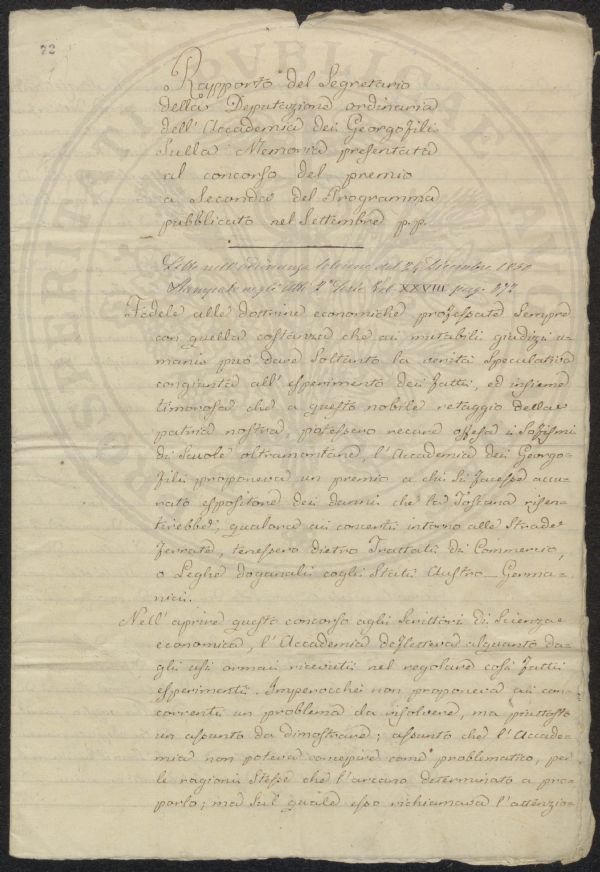 72
Rapporto del Segretario
della Deputazione ordinaria
dell'Accademia dei Georgofili
Sulla Memoria presentata
al concorso del premio
a Seconda del Programma
pubblicato nel Settembre p.p.
Letto nell'adunanza solenne del Dicembre 185
Stampato negli Atti Serie Vol. XXVIII pag. 277
Fedele alle dottrine economiche professate Sempre
con quella costanza che ai mutabili giudizj u-
mani può dare Soltanto la verità Speculativa
congiunta all'esperimento dei fatti, ed insieme
timorosa che a questo nobile retaggio della
patria nostra potessero recare offesa i Sofismi
di Scuole oltramontane, l'Accademia dei Georgo-
fili proponeva un premio a chi Si facesse accu-
rato espositore dei danni che la Toscana risen-
tirebbe, qualora ai concerti intorno alle Strade
ferrate, tenessero dietro Trattati di Commercio,
o Leghe doganali cogli Stati Austro-Germa-
nici.
Nell'aprire questo concorso agli Scrittori di Scienza
economica, l'Accademia defletteva alquanto da-
gli usi ormai ricevuti nel regolare così fatti
esperimenti. Imperocchè non proponeva ai con-
correnti un problema da risolvere, ma piuttosto
un assunto da dimostrare; assunto che l'Accade-
mia non poteva concepire come problematico, per
le ragioni Stesse che l'avevano determinata a pro-
porlo; ma Sul quale essa richiamava l'attenzio-